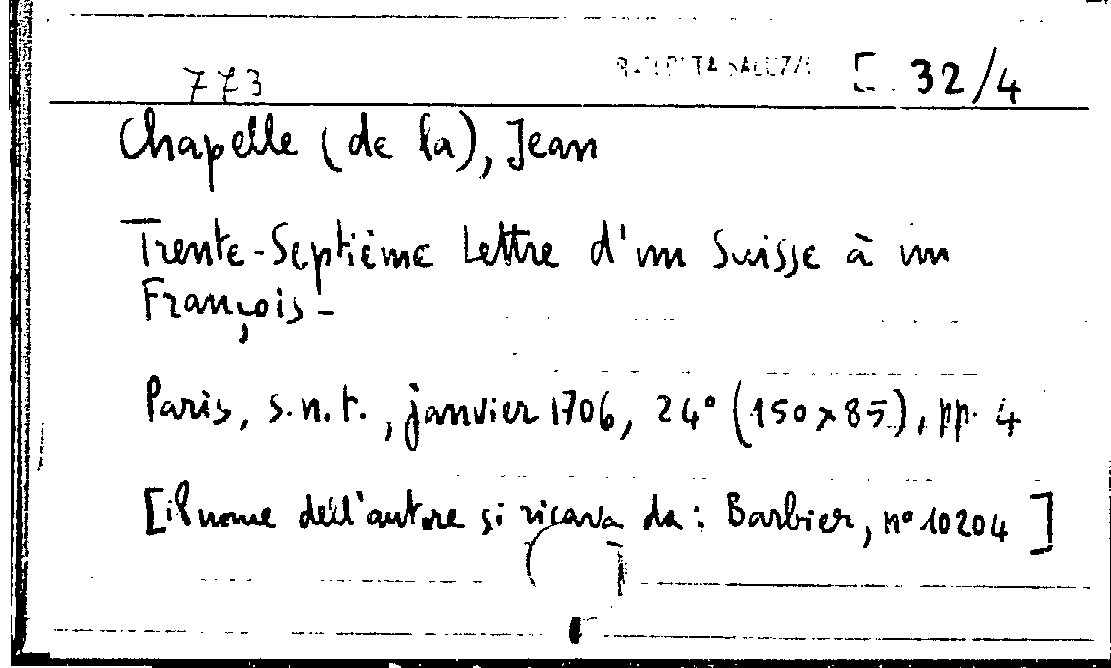 773 [ 32/4
Chapelle (de la), Jean
Trente-Septième Lettre d'un Suisse à un
François -
Paris, s.n.t., janvier 1706, 24° (150 x 85), pp. 4
[il nome dell'autore si ricava da: Barbier, n° 10204 ]